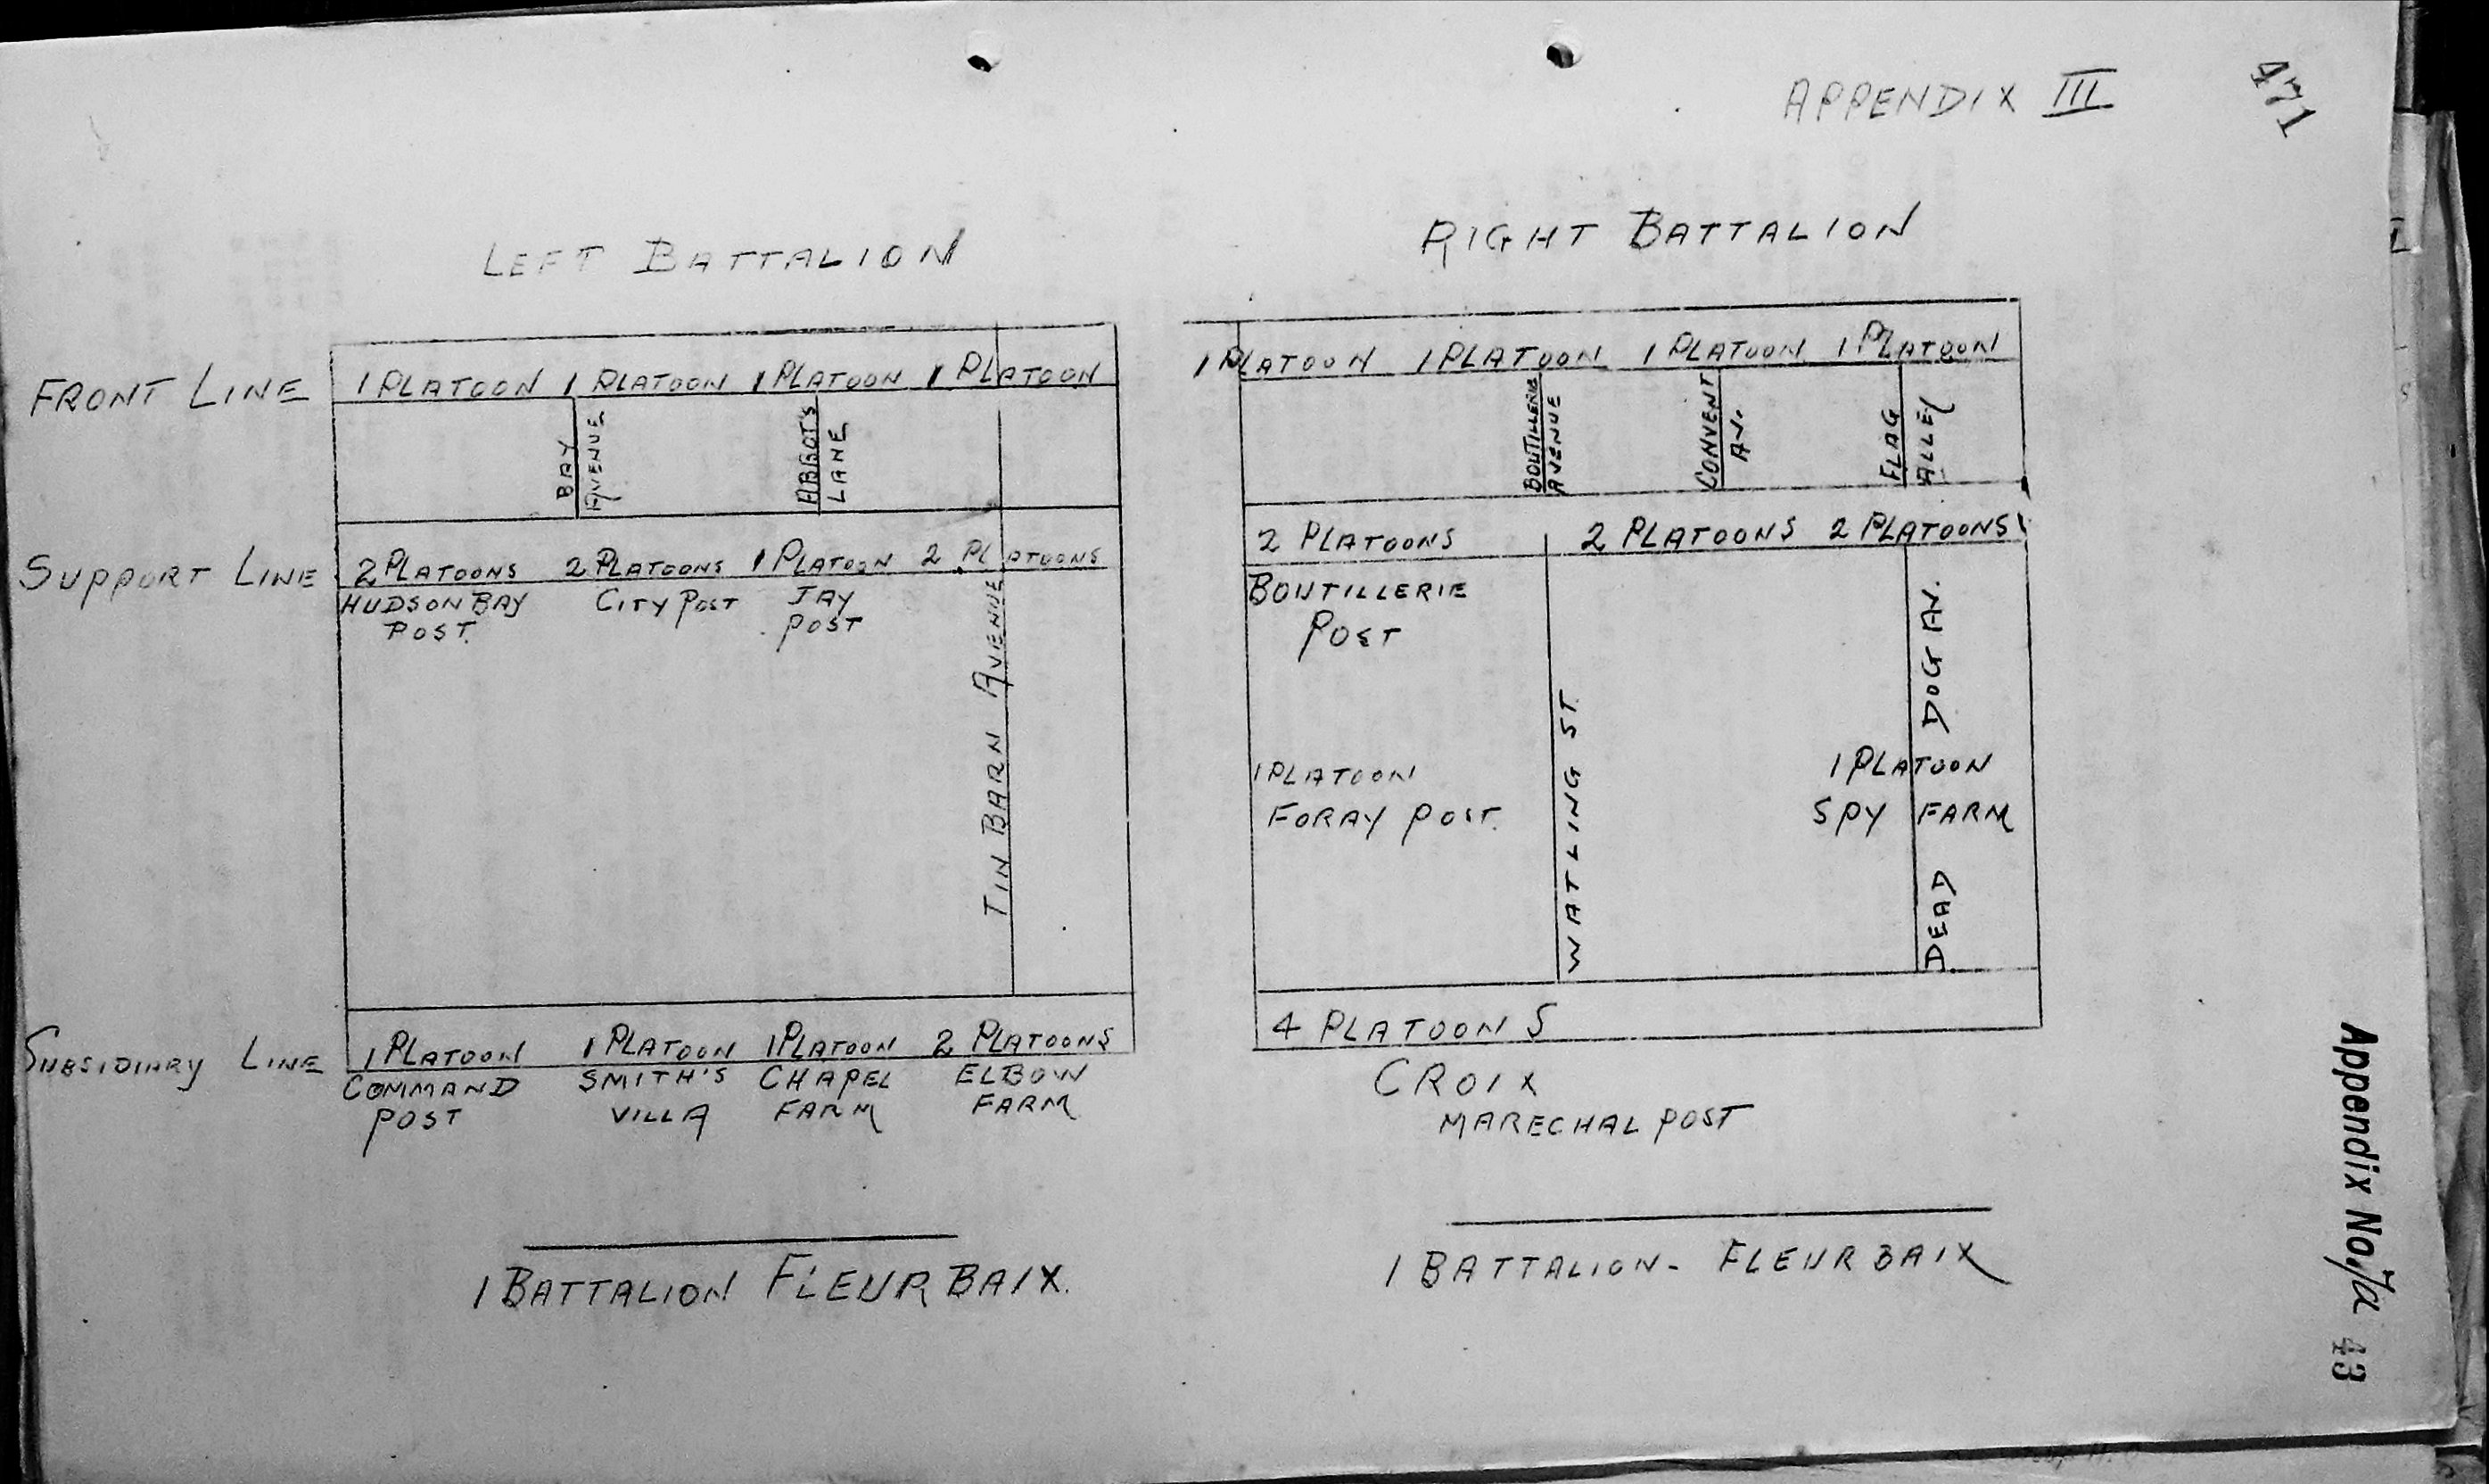 APPENDIX III
471
LEFT BATTALION
FRONT LINE
1 PLATOON 1 PLATOON 1 PLATOON 1 PLATOON
BAY
AVENUE
ABBOT'S
LANE
SUPPORT LINE
2 PLATOONS 2 PLATOONS 1 PLATOON 2 PLATOONS
HUDSON BAY
POST.
CITY POST
JAY
POST
TIN BARN AVENUE
SUBSIDIARY LINE
1 PLATOON 1 PLATOON 1 PLATOON 2 PLATOONS
COMMAND
POST
SMITH'S
VILLA
CHAPEL
FARM
ELBOW
FARM
1 BATTALION FLEURBAIX.
RIGHT BATTALION
1 PLATOON 1 PLATOON 1 PLATOON 1 PLATOON
BOUTILLERIE
AVENUE
CONVENT
AV.
FLAG
ALLEY
2 PLATOONS 2 PLATOONS 2 PLATOONS
BOUTILLERIE
POST
WATLING ST.
DEAD DOG AV.
1 PLATOON
FORAY POST.
1 PLATOON
SPY FARM
4 PLATOONS
CROIX
MARECHAL POST
1 BATTALION - FLEURBAIX
Appendix No. 43